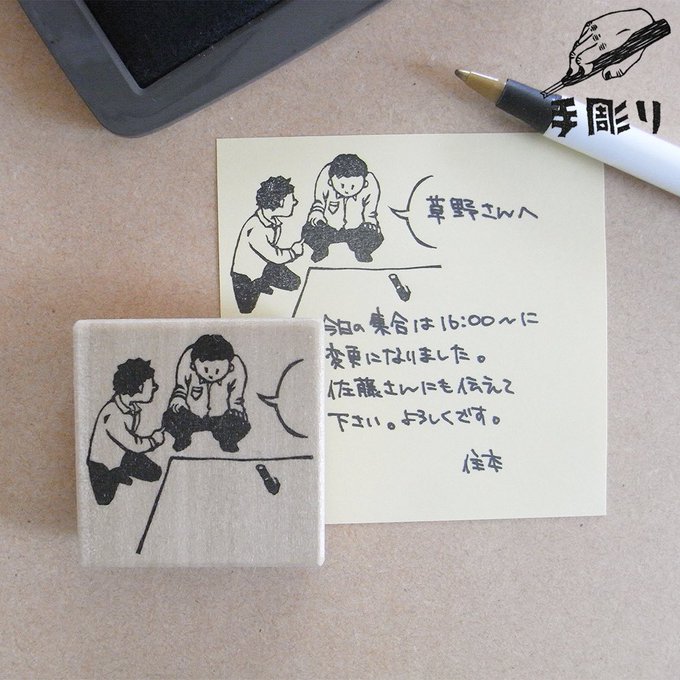 手彫り
草野さんへ
今日の集合は16:00～に
変更になりました。
佐藤さんにも伝えて
下さい。よろしくです。
住本